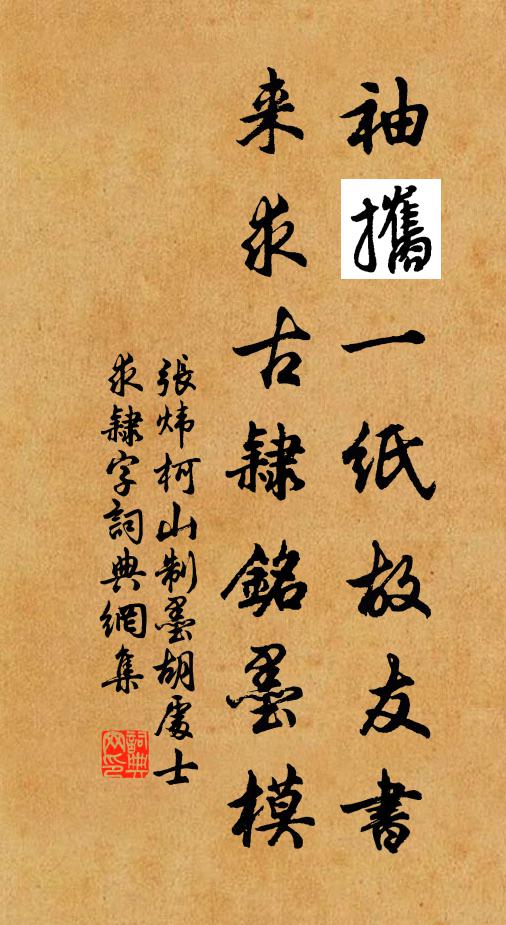 袖攜一紙故友書
来求古隸銘墨模
張煒柯山制墨胡處士
求隸字詞典網集
詞典
網印